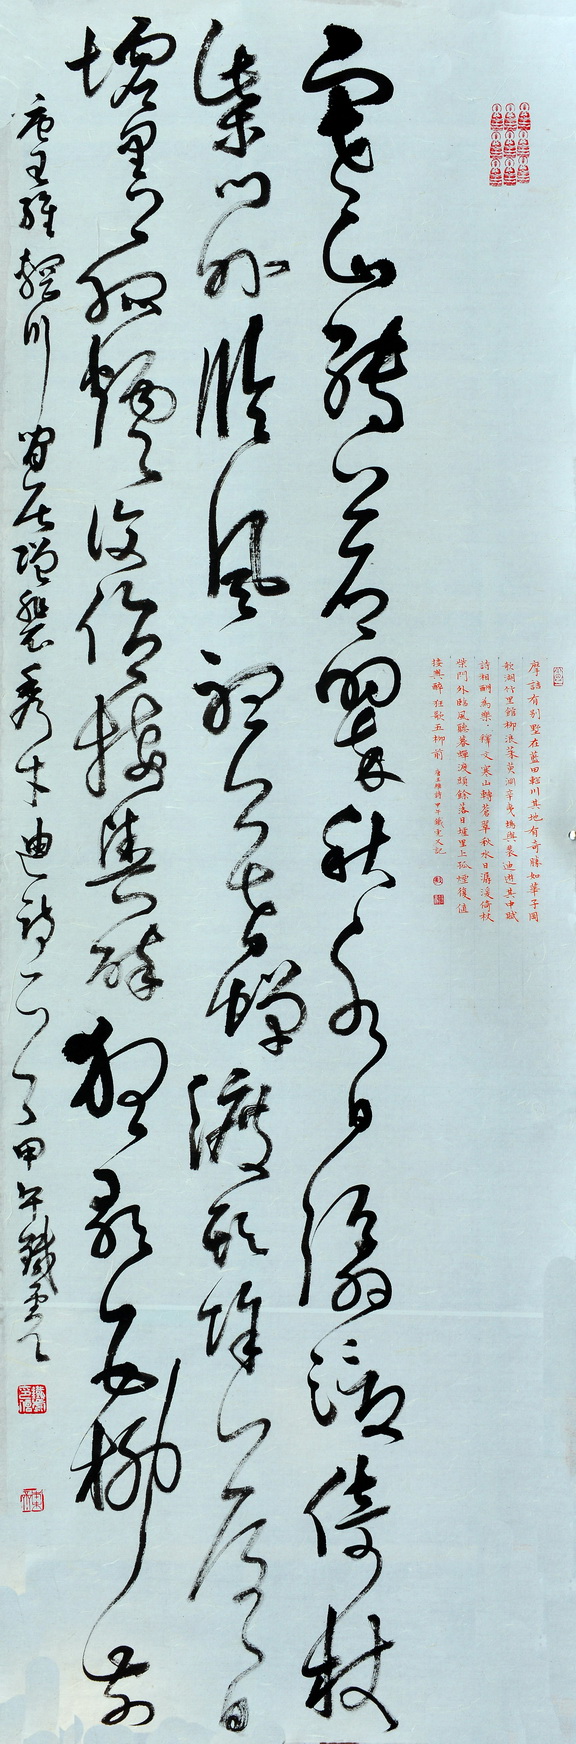 摩詰有別墅在藍田輞川其地有奇勝如華子岡
欹湖竹里館柳浪茱萸沜辛夷塢與裴迪遊其中賦
詩相酬為樂釋文寒山轉蒼翠秋水日潺湲倚杖
柴門外臨風聽暮蟬渡頭餘落日墟里上孤煙復值
接輿醉狂歌五柳前 唐王維詩甲午鐵雲又記
寒山轉蒼翠秋水日潺湲倚杖
柴門外臨風聽暮蟬渡頭餘落日
墟里上孤煙復值接輿醉狂歌五柳前
唐王維輞川閒居贈裴秀才迪詩一首甲午鐵雲